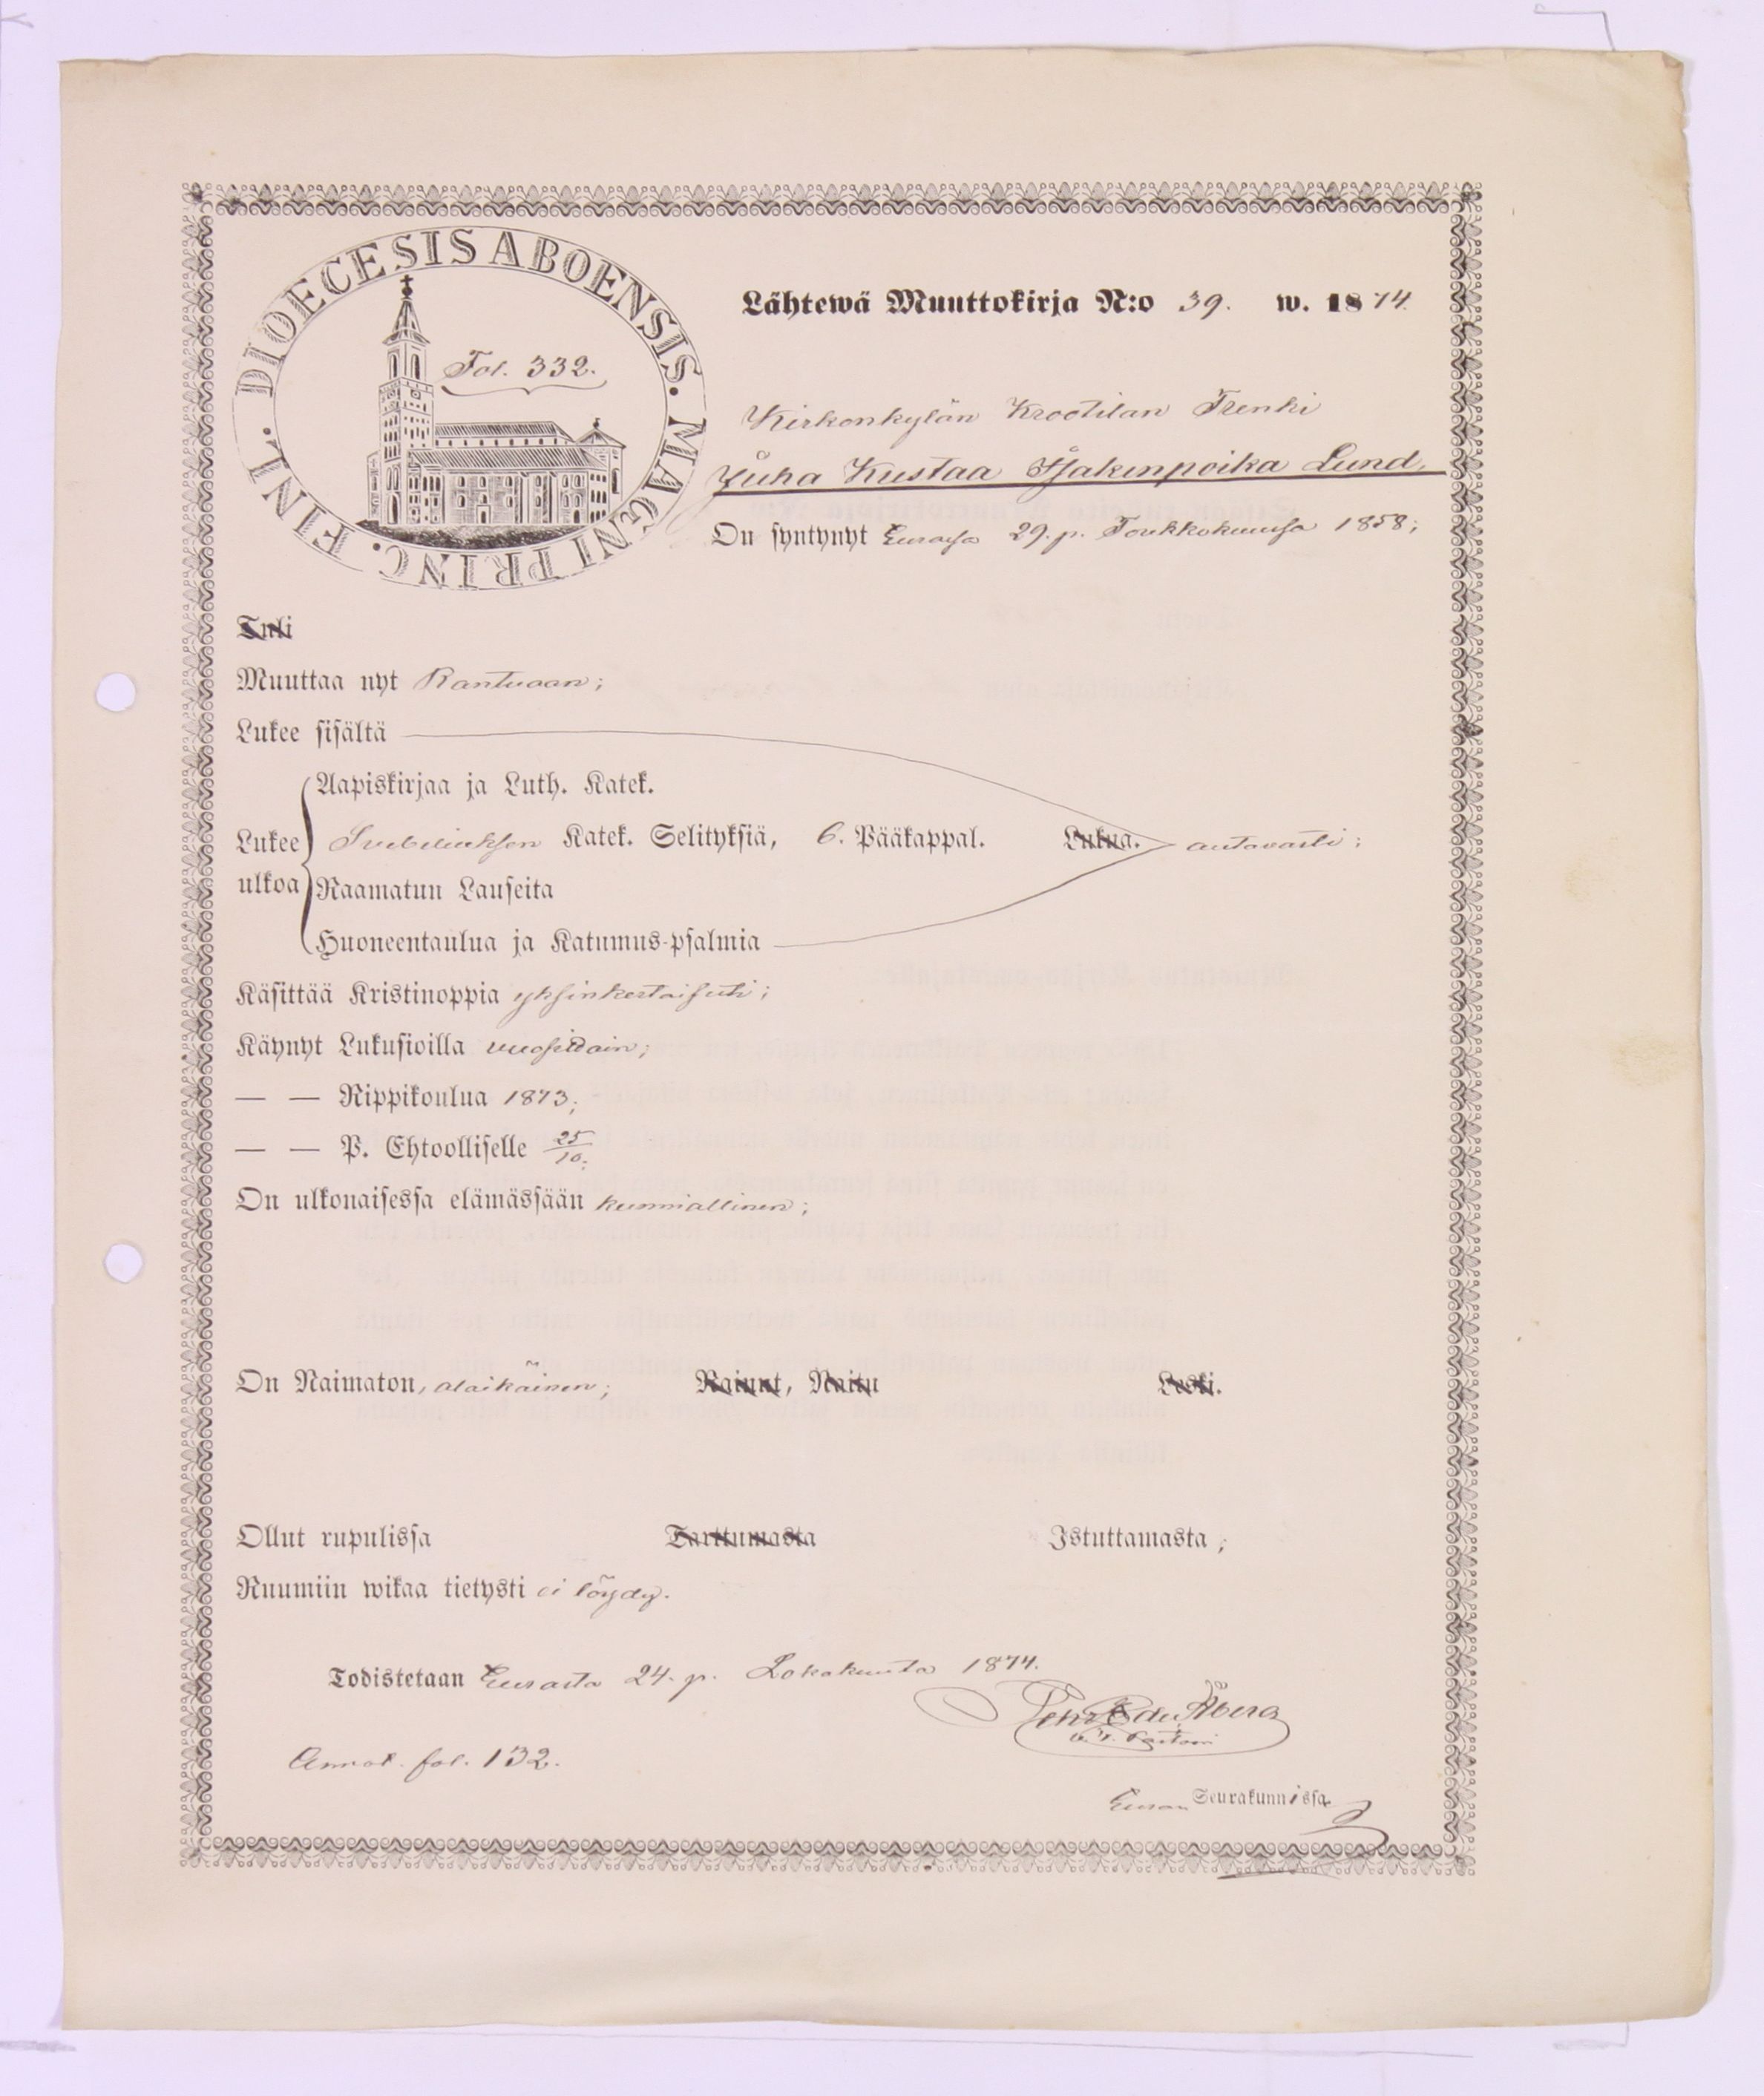 DIOECESIS ABOENSIS. MAGNI PRINC. FINL.
Fol. 332.
Lähtewä Muuttokirja N:o 39. w. 1874.
Kirkonkylän Krootilan Trenki
Juha Kustaa Isakinpoika Lund,
On syntynyt Eurassa 29. p. Toukkokuussa 1858;
Tuli
Muuttaa nyt Kantvaan;
Lukee sisältä
Aapiskirjaa ja Luth. Katek.
Lukee ulkoa Svebeliuksen Katek. Selityksiä, 6. Pääkappal. Lukua. autavasti;
Raamatun Lauseita
Huoneentaulua ja Katumus-psalmia
Käsittää Kristinoppia yksinkertaisesti;
Käynyt Lukusioilla vuosittain;
— — Rippikoulua 1873;
— — P. Ehtoolliselle 25/10;
On ulkonaisessa elämässään kunniallinen;
On Naimaton, alaikäinen; Nainut, Naitu Leski.
Ollut rupulissa Tarttumasta Istuttamasta;
Ruumiin wikaa tietysti ei löydy.
Todistetaan Eurasta 24. p. Lokakuuta 1874.
Åberg
v. t. Pastori
Annot. fol. 132.
Euran Seurakunnissa